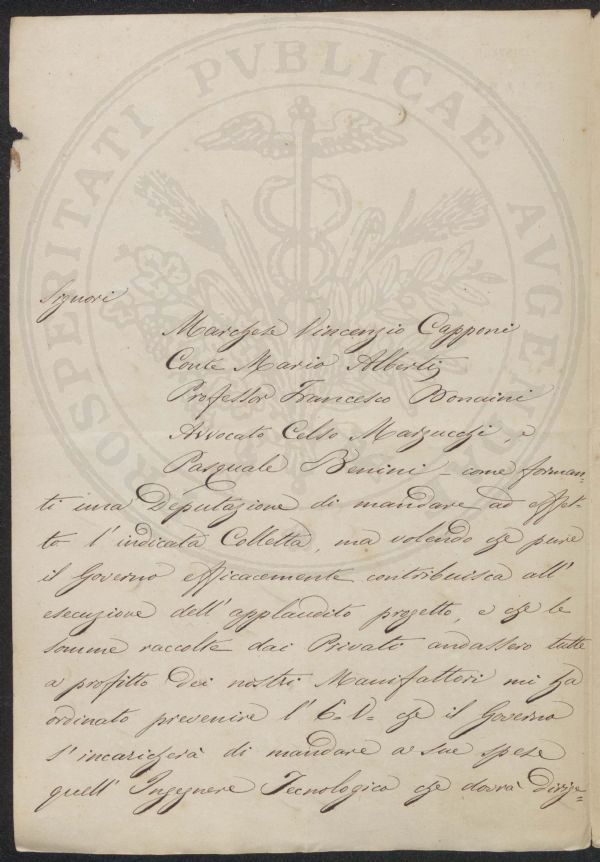 PROSPERITATI PVBLICAE AVGENDAE
Signori
Marchese Vincenzio Capponi
Conte Mario Alberti
Professor Francesco Bonaini
Avvocato Celso Marzucchi, e
Pasquale Benini - come forman-
ti una Deputazione di mandare ad effet-
to l'indicata Colletta, ma volendo che pure
il Governo efficacemente contribuisca all'
esecuzione dell'applaudito progetto, e che le
somme raccolte dai Privati andassero tutte
a profitto dei nostri Manifattori mi ha
ordinato prevenire l'E.V. che il Governo
s'incaricherà di mandare a sue spese
quell'Ingegnere Tecnologico che dovrà dirige-